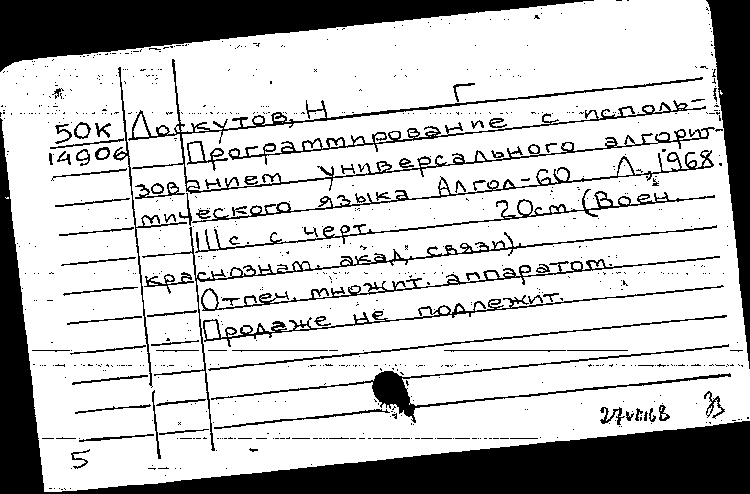 50К Лоскутов, Н Г
14906 Программирование с исполь-
зованием универсального алгорит-
мического языка Алгол-60. Л., 1968.
111 с. с черт. 20см. (Воен.
краснознам. акад. связи).
Отпеч. множит. аппаратом.
Продаже не подлежит.
27VIII68
5